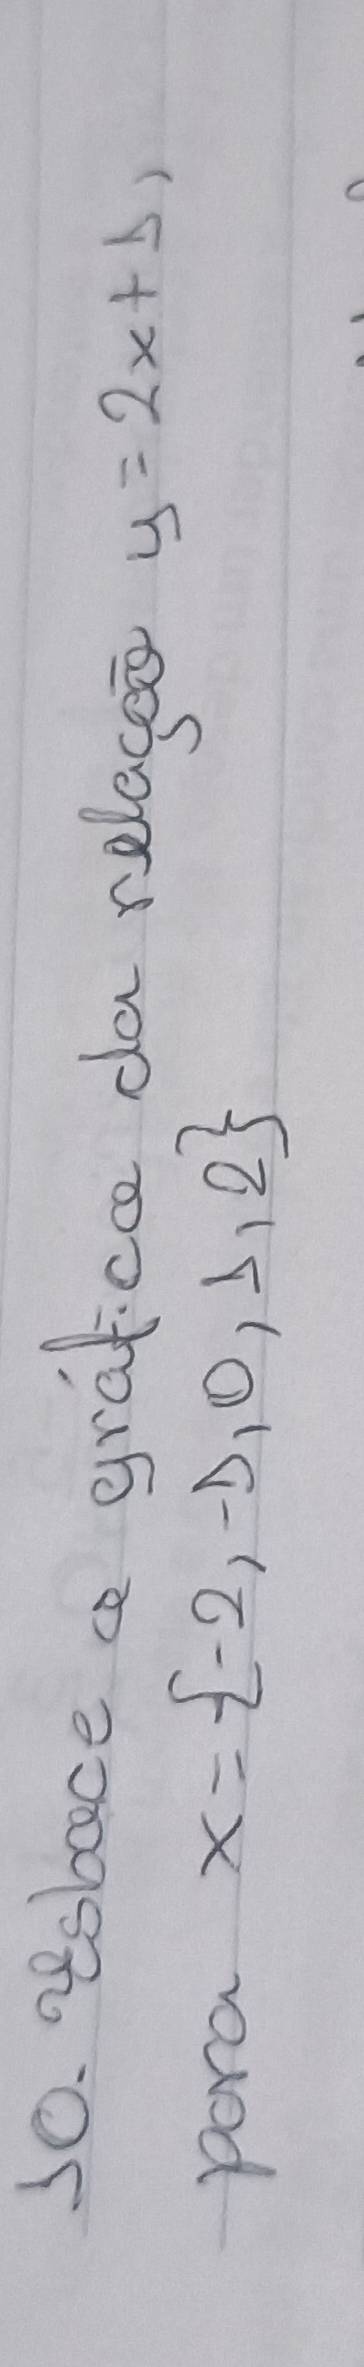 10. Esboce o gráfico da relação y = 2x + 1,
para x = {-2, -1, 0, 1, 2}